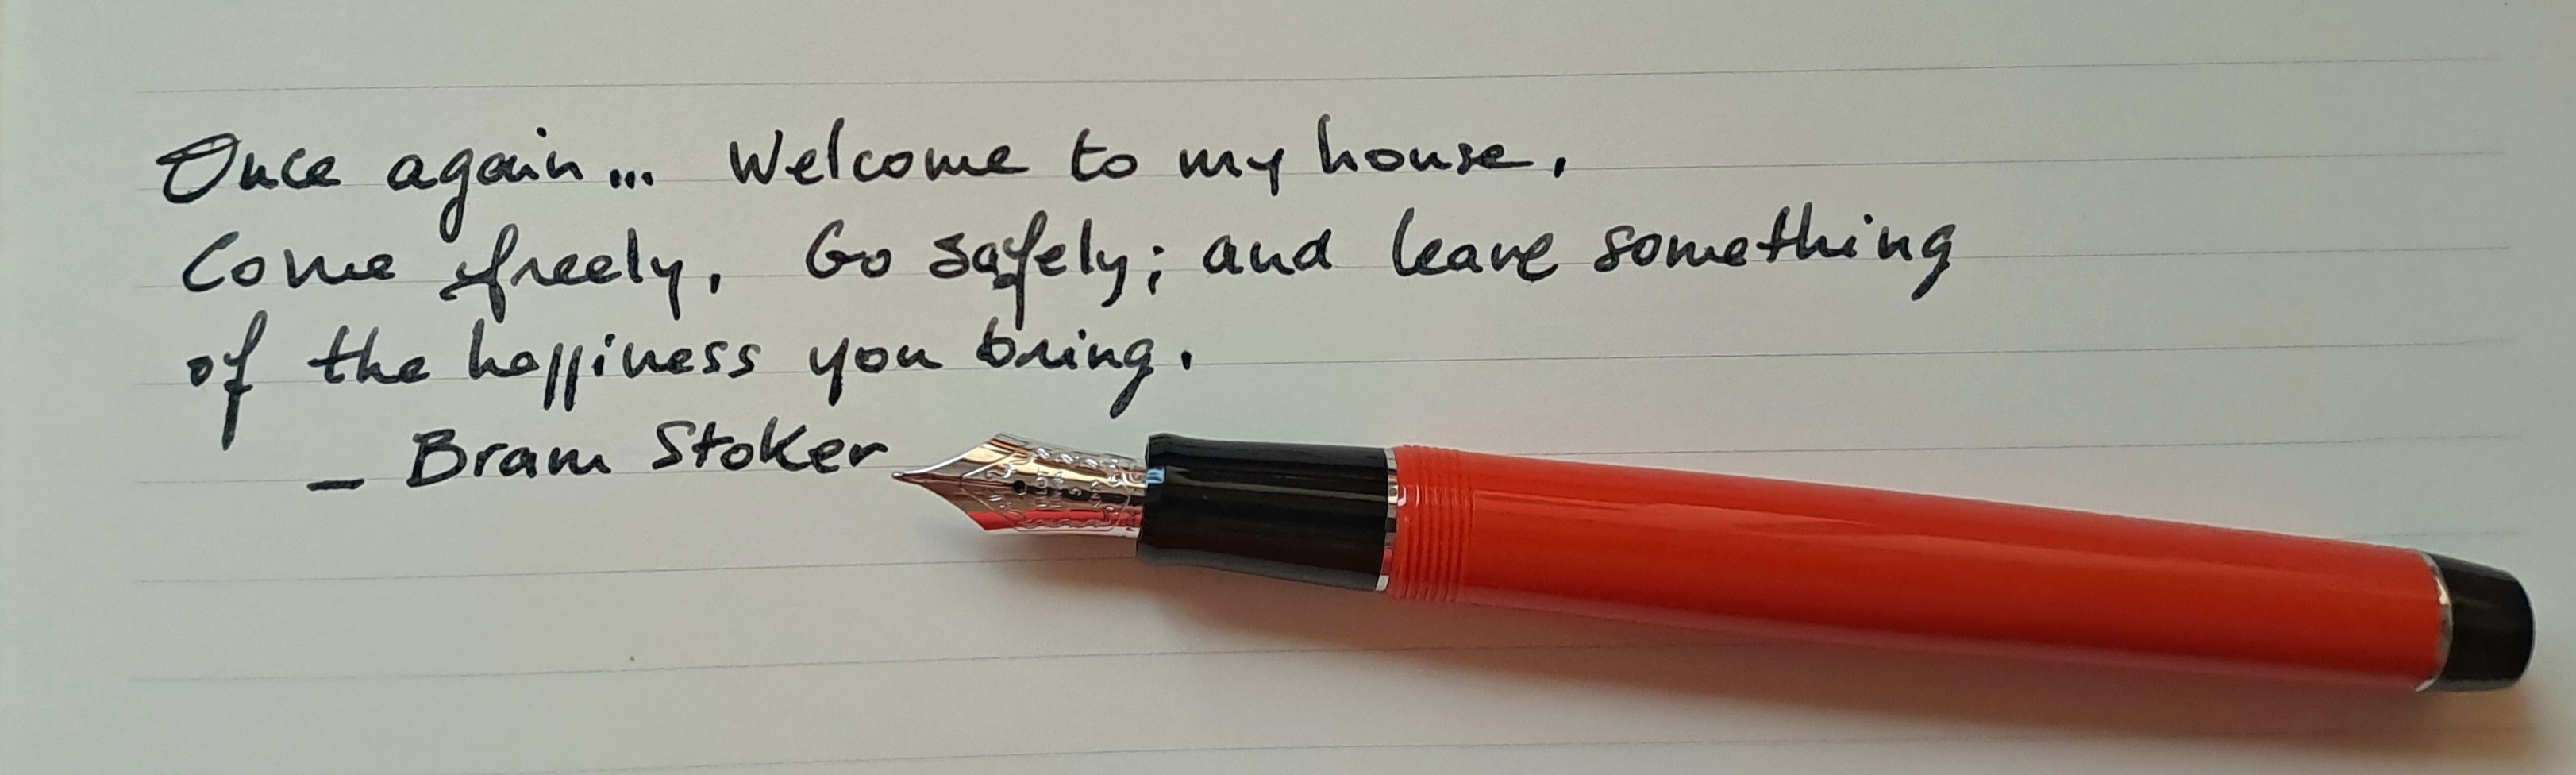 Once again... Welcome to my house.
Come freely. Go safely; and leave something
of the happiness you bring.
_ Bram Stoker